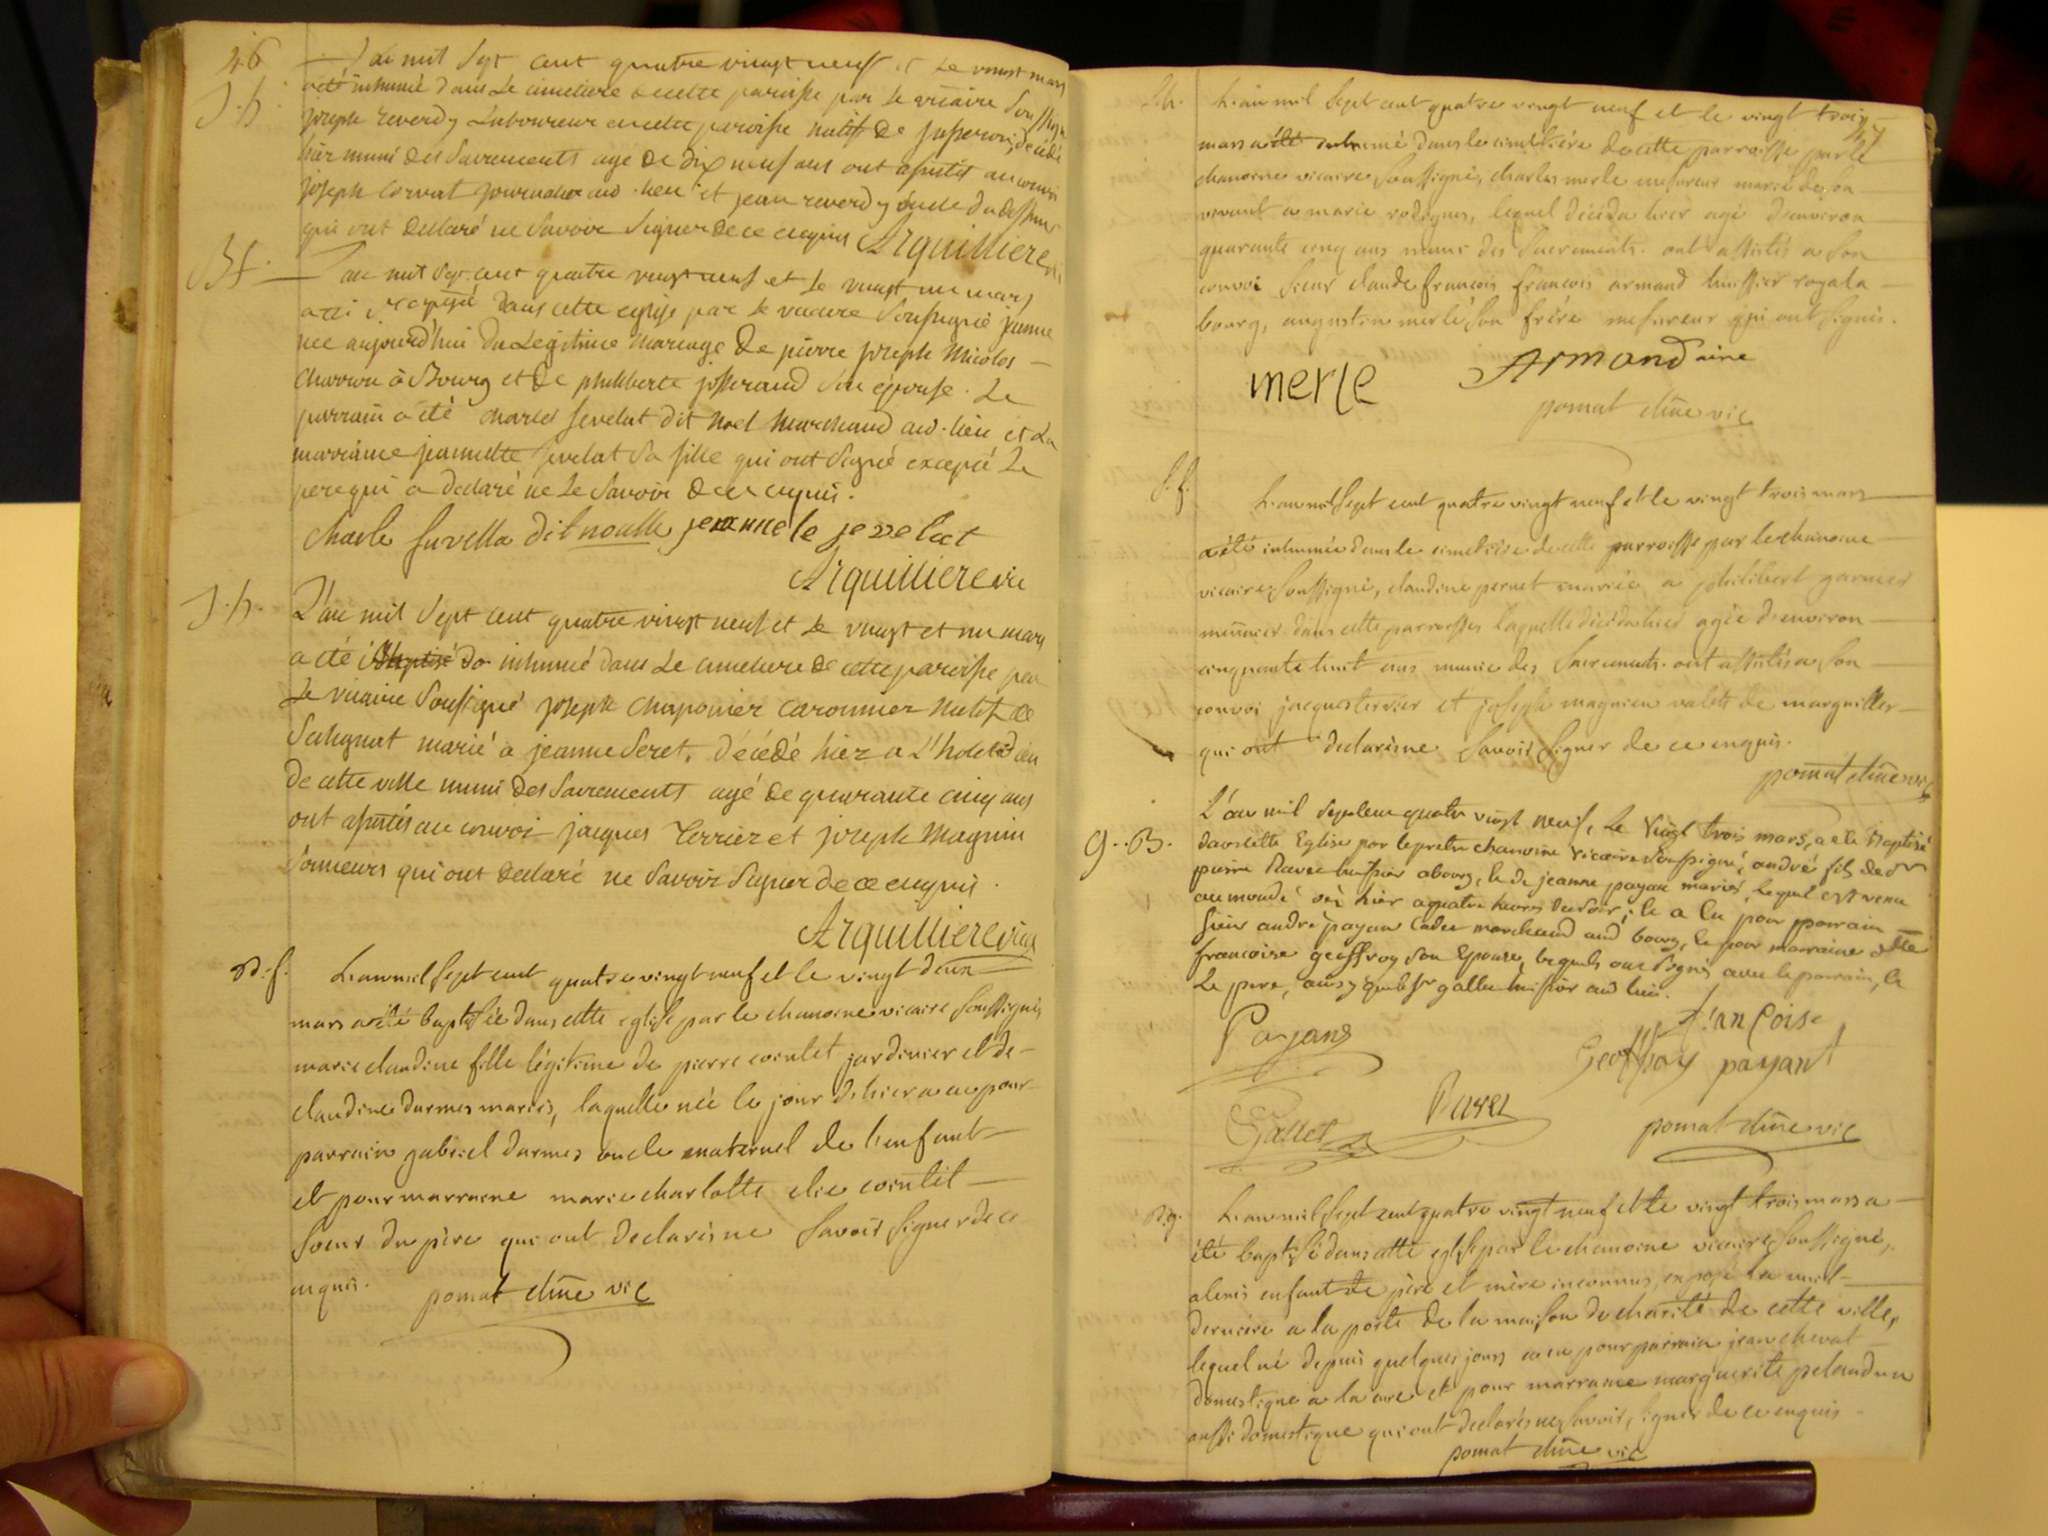 46 L'an mil sept cent quatre vingt neuf et le vingt mars
S. h. a été inhumé dans le cimetiere de cette paroisse par le vicaire soussigné
joseph reverdy Laboureur en cette paroisse natif de jasseron, décédé
hier muni des sacrements agé de dix neuf ans ont assisté au convoi
joseph corvat journalier aud. lieu et jean reverdy du deffunt
qui ont declaré ne savoir signer de ce enquis Arquilliere vic
B f. L'an mil sept cent quatre vingt neuf et le vingt un mars
a été dans cette eglise par le vicaire soussigné jeanne
née aujourd'hui du Légitime mariage de pierre joseph Nicolas
charron à Bourg et de philiberte josserand son épouse. Le
parrain a été charles sevelat dit noel marchand aud. lieu et La
marraine jeannette sevelat sa fille qui ont signé excepté Le
pere qui a declaré ne Le savoir de ce enquis.
charle dit noelle
Arquilliere vic
S. h. L'an mil sept cent quatre vingt neuf et le vingt et un mars
a été inhumé dans Le cimetiere de cette paroisse par
Le vicaire soussigné joseph chaponier natif de
marié a jeanne seret, décédé hier a L'hotel dieu
de cette ville muni des sacrements agé de quarante cinq ans
ont assistés au convoi jacques Terrier et joseph Magnin
sonneurs qui ont declaré ne savoir signer de ce enquis.
Arquilliere vic
B. f. L'an mil sept cent quatre vingt neuf et le vingt deux
mars a été baptisée dans cette eglise par le chanoine vicaire soussigné,
marie claudine fille légitime de pierre cointet jardinier et de
claudine darmes mariés, laquelle née le jour d'hier a eu pour
parrain gabriel darmes oncle maternel de l'enfant
et pour marraine marie charlotte cointet
soeur du père qui ont declarés ne savoir signer de ce
enquis. pomat chne vic
S. h. L'an mil sept cent quatre vingt neuf et le vingt trois
mars a été inhumé dans le cimetière de cette parroisse par le
chanoine vicaire soussigné, charles merle mesureur marié de son
vivant a marie lequel décéda hier agé d'environ
quarante cinq ans muni des sacrements. ont assistés a son
convoi sieur claude françois françois armand huissier royal a
bourg, augustin merle son frère mesureur qui ont signés.
merle Armand ainé
pomat chne vic
S. f. L'an mil sept cent quatre vingt neuf et le vingt trois mars
a été inhumée dans le cimetière de cette parroisse par le chanoine
vicaire soussigné, claudine pernet mariée a philibert garnier
meunier dans cette parroisse, laquelle décéda hier agée d'environ
cinquante huit ans munie des sacrements. ont assistés a son
convoi jacques terrier et joseph magnien valets de marguillier
qui ont declarés ne savoir signer de ce enquis.
pomat chne vic
g. B. L'an mil sept cent quatre vingt neuf, Le vingt trois mars, a été Baptisé
dans cette Eglise par le pretre chanoine vicaire soussigné, andré fils de sr
pierre huissier a bourg, et de jeanne payan mariés, lequel est venu
au monde hier a quatre heures du soir; et a eu pour parrain
sieur andré payan cadet marchand aud bourg, et pour marraine
françoise geoffroy son Epouse, lesquels ont signés avec le parrain, et
Le pere, ainsy que le sr gallet huissier aud lieu.
Payans françoise
Geoffroy payant
Gallet
pomat chne vic
B. g. L'an mil sept cent quatre vingt neuf et le vingt trois mars a
été baptisé dans cette eglise par le chanoine vicaire soussigné,
alexis enfant de père et mère inconnus, exposé la nuit
dernière a la porte de la maison de charité de cette ville,
lequel né depuis quelques jours a eu pour parrain jean chevat
domestique a la cure et pour marraine marguerite
aussi domestique qui ont declarés ne savoir signer de ce enquis.
pomat chne vic